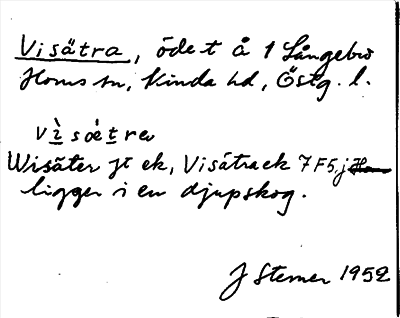 Visätra, öde t å 1 Långebro
Horns sn, Kinda hd, Östg. l.
vìsǽtra
Wisäter jt ek, Visätraek 7F5j
ligger i en djupskog.
J Sterner 1952